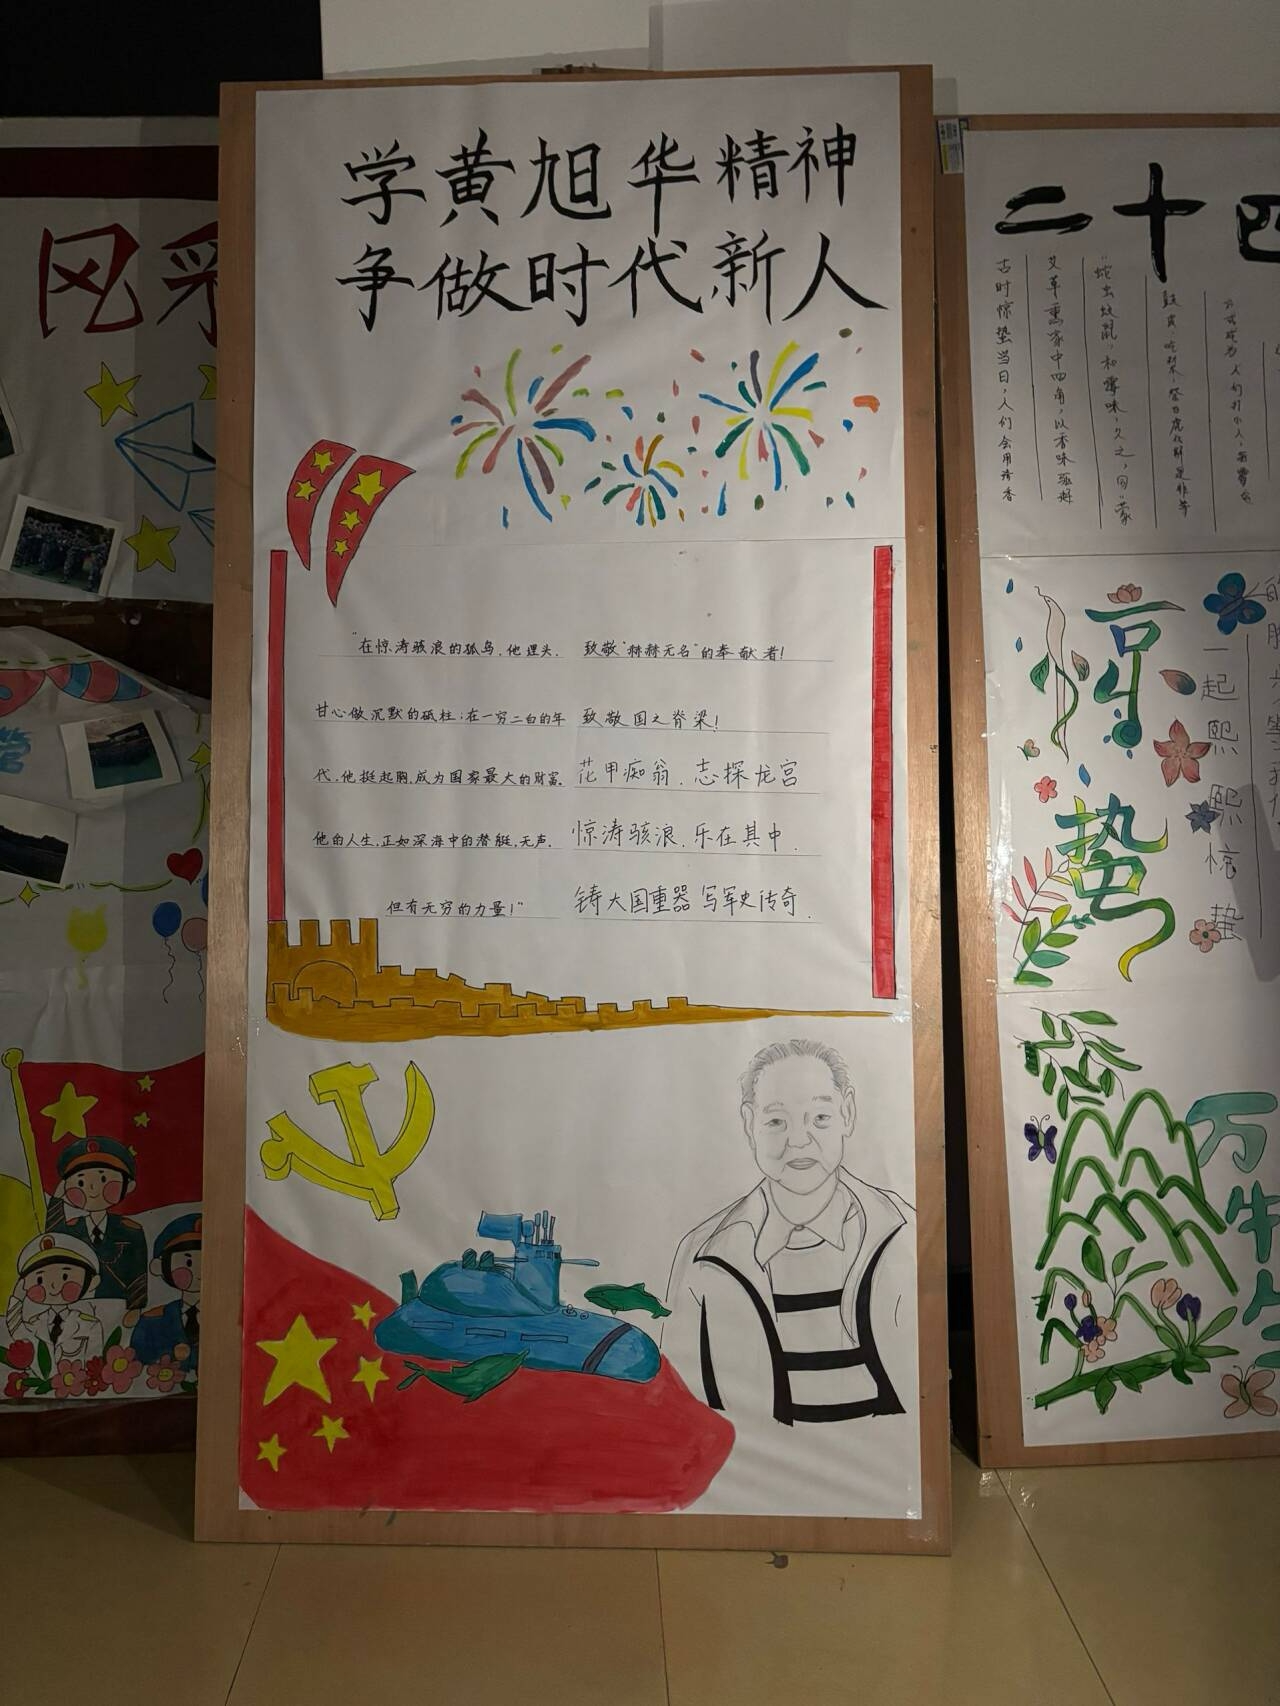 学黄旭华精神
争做时代新人
"在惊涛骇浪的孤岛，他埋头，
甘心做沉默的砥柱；在一穷二白的年
代，他挺起胸，成为国家最大的财富。
他的人生，正如深海中的潜艇，无声，
但有无穷的力量！"
致敬"赫赫无名"的奉献者！
致敬国之脊梁！
花甲痴翁，志探龙宫
惊涛骇浪，乐在其中．
铸大国重器 写军史传奇．
风采
二十四
古时惊蛰当日，人们会用清香
艾草熏家中四角，以香味驱赶
"蛇虫蚊鼠"和霉味，久之，
惊蛰
一起熙熙惊蛰
万物生